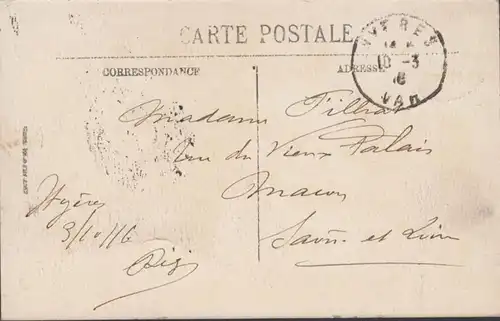 CARTE POSTALE
HYERES
10 - 3
16
VAR
CORRESPONDANCE
ADRESSE
Madame
Rue du Vieux Palais
Macon
Saône et Loire
Hyères
3/10/16